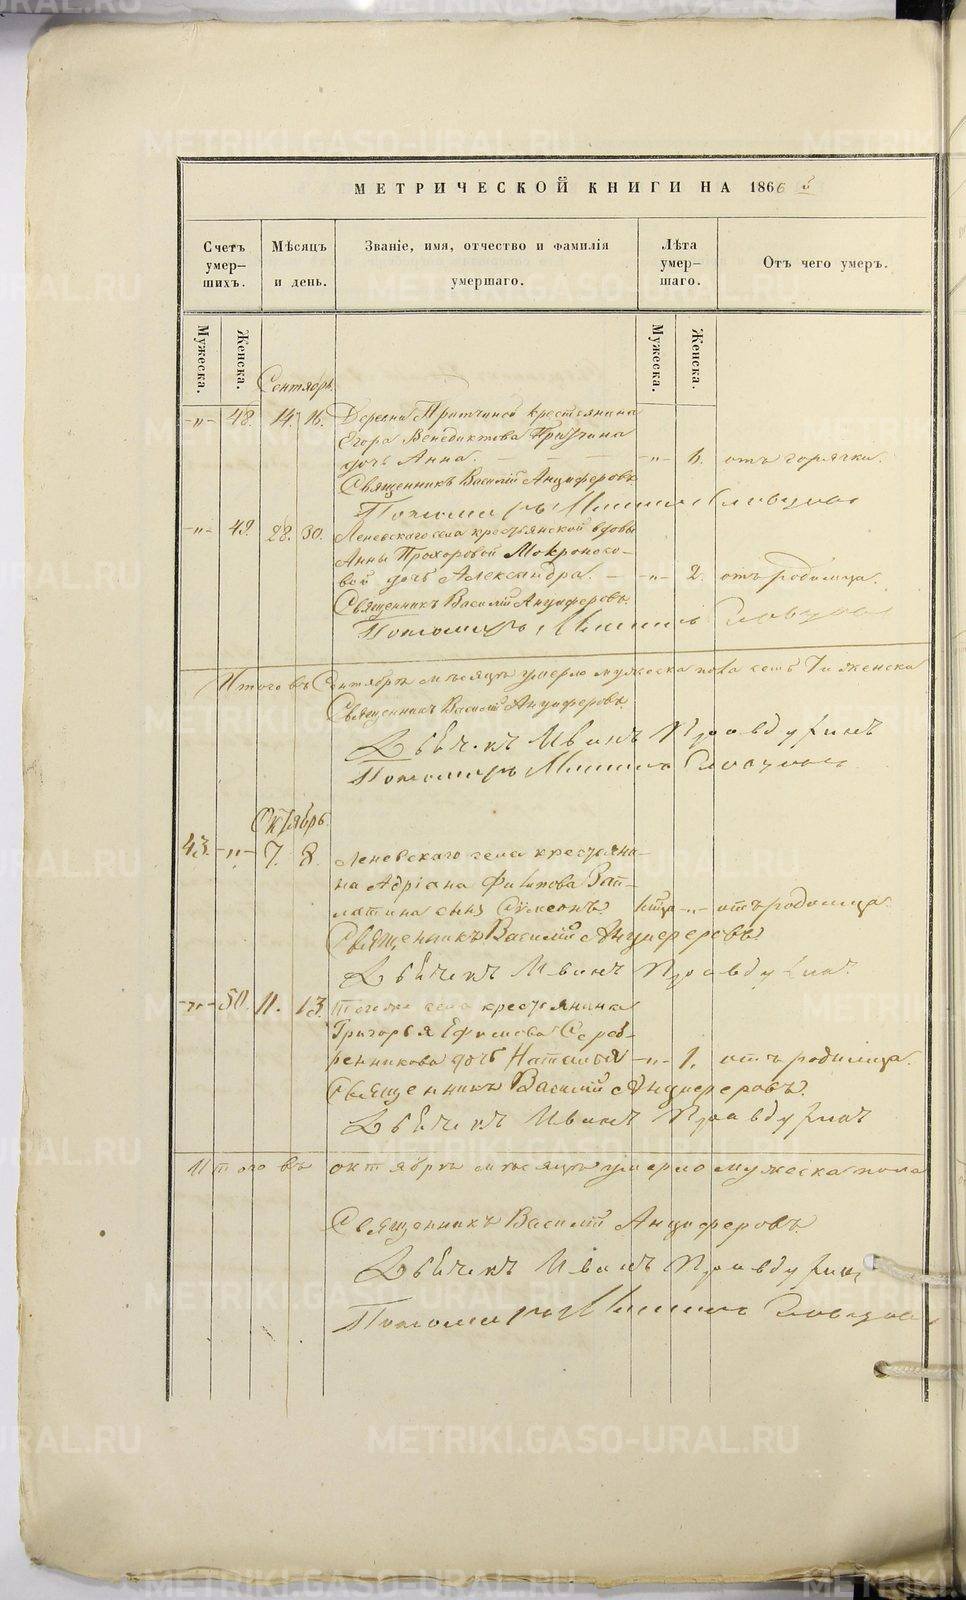 МЕТРИЧЕСКОЙ КНИГИ НА 1866 й
Счетъ умер- шихъ.
Мѣсяцъ и день.
Званіе, имя, отчество и фамилія умершаго.
Лѣта умер- шаго.
Отъ чего умеръ.
Мужеска. Женска. Мужеска. Женска.
Сентябрь.
-„- 48. 14. 16. Деревни Притчиной крестьянина
Егора Венедиктова Притчина
дочь Анна. -„- отъ горячки.
Священникъ Василій Анциферовъ
Пономарь
-„- 49. 28. 30. Леневскаго села крестьянской вдовы
Анны Прохоровой Мокроносо-
вой дочь Александра. -„- 2. отъ родимца.
Священникъ Василій Анциферовъ.
Пономарь
Итого въ Сентябрѣ мѣсяцѣ умерло мужеска пола семь 7 и женска
Священникъ Василій Анциферовъ.
Дьячекъ Иванъ Правдухинъ
Пономарь
Октябрь.
43. -„- 7. 8. Леневскаго села крестьяни-
на Адріана Филипова Зап-
латина сынъ Сумеонъ. -„- отъ родимца.
Священникъ Василій Анциферовъ.
Дьячекъ Иванъ Правдухинъ.
-„- 50. 11. 13. Тогоже села крестьянина
Григорья Ефимова Сереб-
ренникова дочь Наталья -„- 1. отъ родимца.
Священникъ Василій Анциферовъ.
Дьячекъ Иванъ Правдухинъ
Итого въ октябрѣ мѣсяцѣ умерло мужеска пола
Священникъ Василій Анциферовъ.
Дьячекъ Иванъ Правдухинъ
Пономарь
METRIKI.GASO-URAL.RU